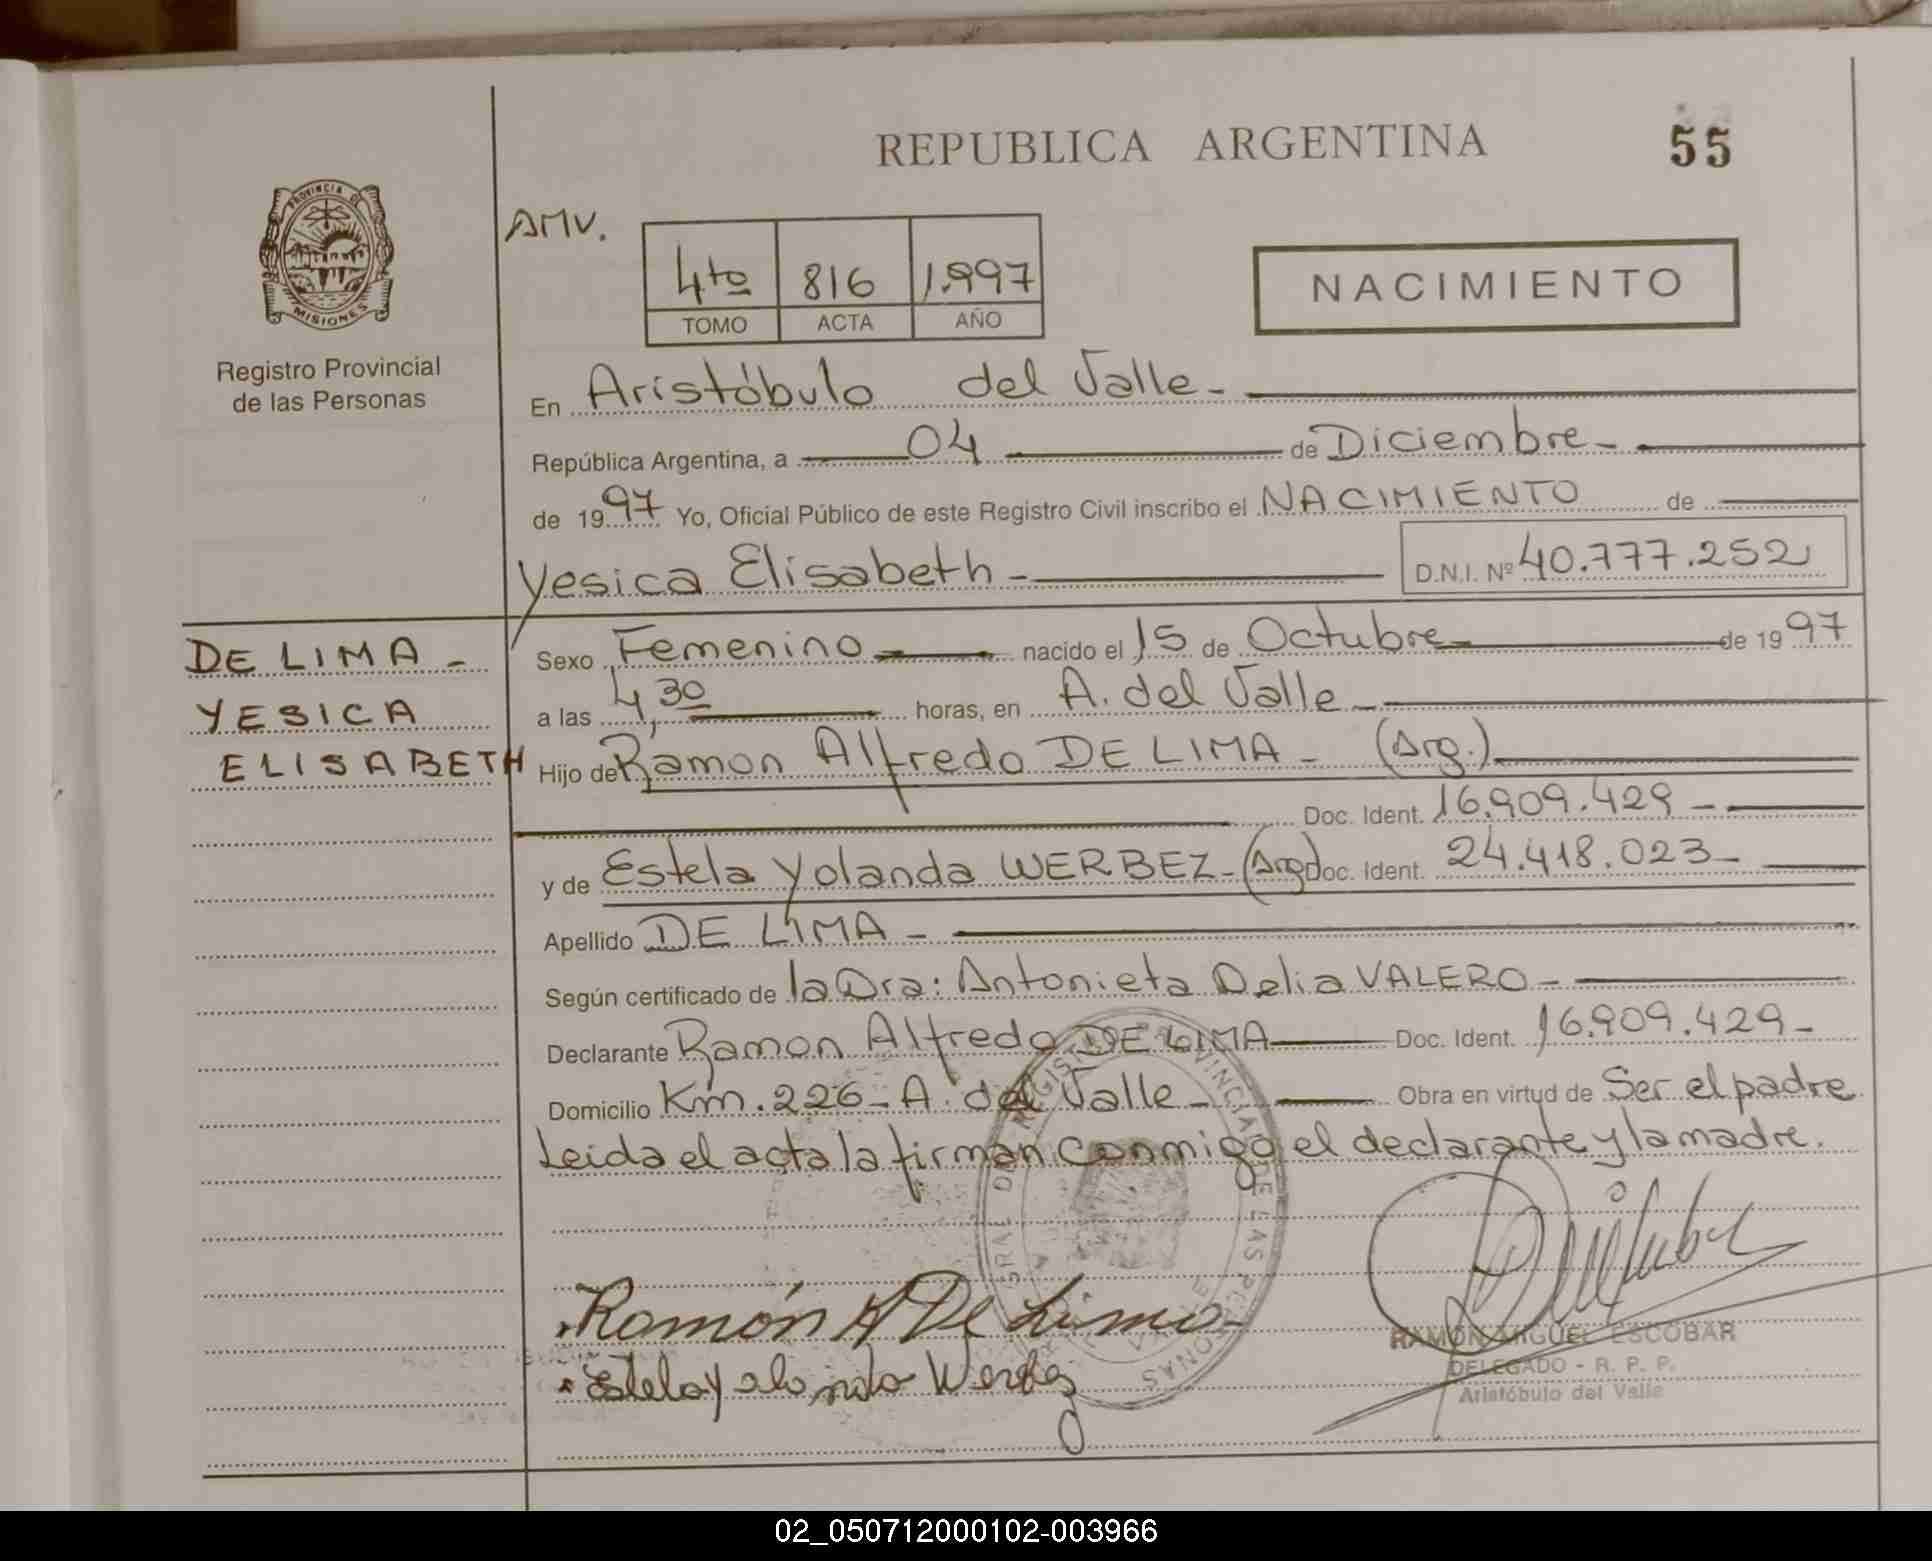 REPUBLICA ARGENTINA
55
PROVINCIA DE
MISIONES
Registro Provincial
de las Personas
AMV.
4to 816 1.997
TOMO ACTA AÑO
NACIMIENTO
En Aristóbulo del Valle-
República Argentina, a 04 de Diciembre-
de 1997 Yo, Oficial Público de este Registro Civil inscribo el NACIMIENTO de
Yesica Elisabeth - D.N.I. Nº 40.777.252
DE LIMA -
YESICA
ELISABETH
Sexo Femenino nacido el 15 de Octubre de 1997
a las 4,30 horas, en A. del Valle-
Hijo de Ramon Alfredo DE LIMA - (Arg.)
Doc. Ident. 16.909.429 -
y de Estela Yolanda WERBEZ- (Arg) Doc. Ident. 24.418.023-
Apellido DE LIMA -
Según certificado de la Dra: Antonieta Delia VALERO-
Declarante Ramon Alfredo DE LIMA Doc. Ident. 16.909.429-
Domicilio Km. 226- A. del Valle- Obra en virtud de Ser el padre
Leida el acta la firman conmigo el declarante y la madre.
Ramón A De Lima
Estela Yolanda Werbez
RAMON MIGUEL ESCOBAR
DELEGADO - R. P. P.
Aristóbulo del Valle
02_050712000102-003966